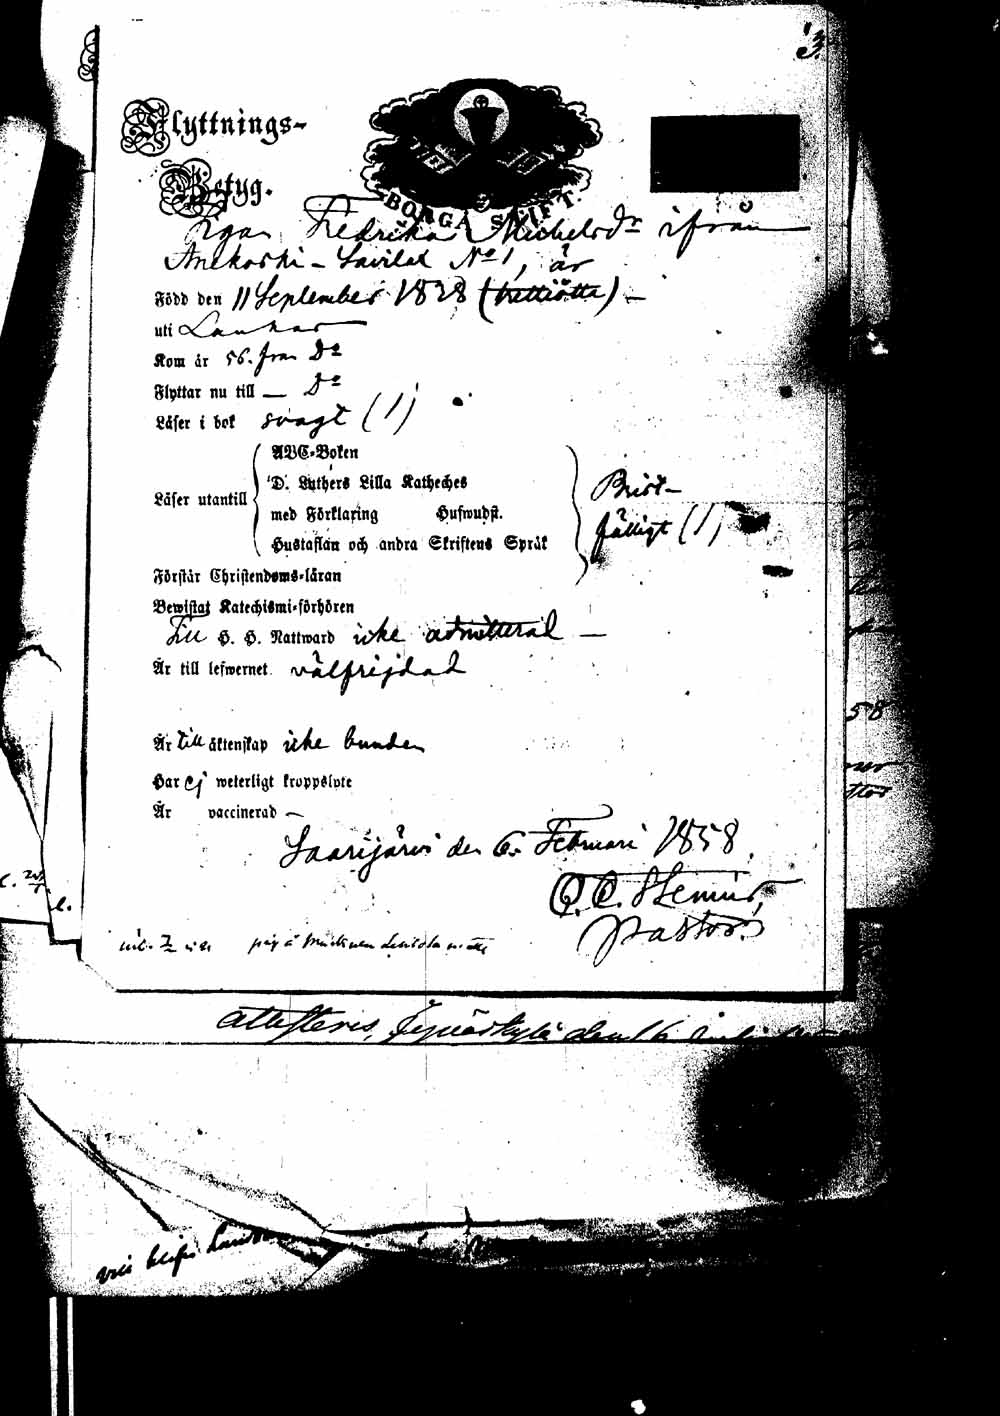 3
Flyttnings-
Betyg.
BORGÅ STIFT.
Pigan Fredrika Michelsdr ifrån
Anekoski – Savilax No 1, är
Född den 11 September 1828 (trettiåtta) –
uti Laukas
Kom år 56. från Do
Flyttar nu till — Do
Läser i bok svagt (1)
ABC-Boken
D. Luthers Lilla Katheches
Läser utantill
med Förklaring Hufwudst.
Hustaflan och andra Skriftens Språk
Brist-
fälligt (1)
Förstår Christendoms-läran
Bewistat Katechismi-förhören
Till H. H. Nattward icke admitterad –
Är till lefwernet välfrejdad
Är till äktenskap icke bunden
Har ej weterligt kroppslyte
Är vaccinerad –
Saarijärvi den 6. Februari 1858.
Pastor.
58
attesteras, den 16